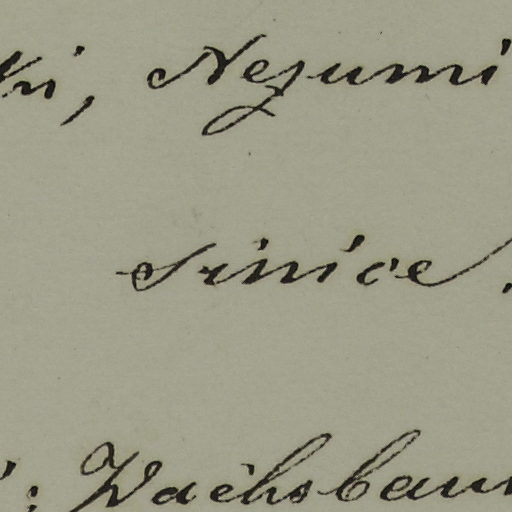 ki, Nezumi
sinice.
: Wachsbaum